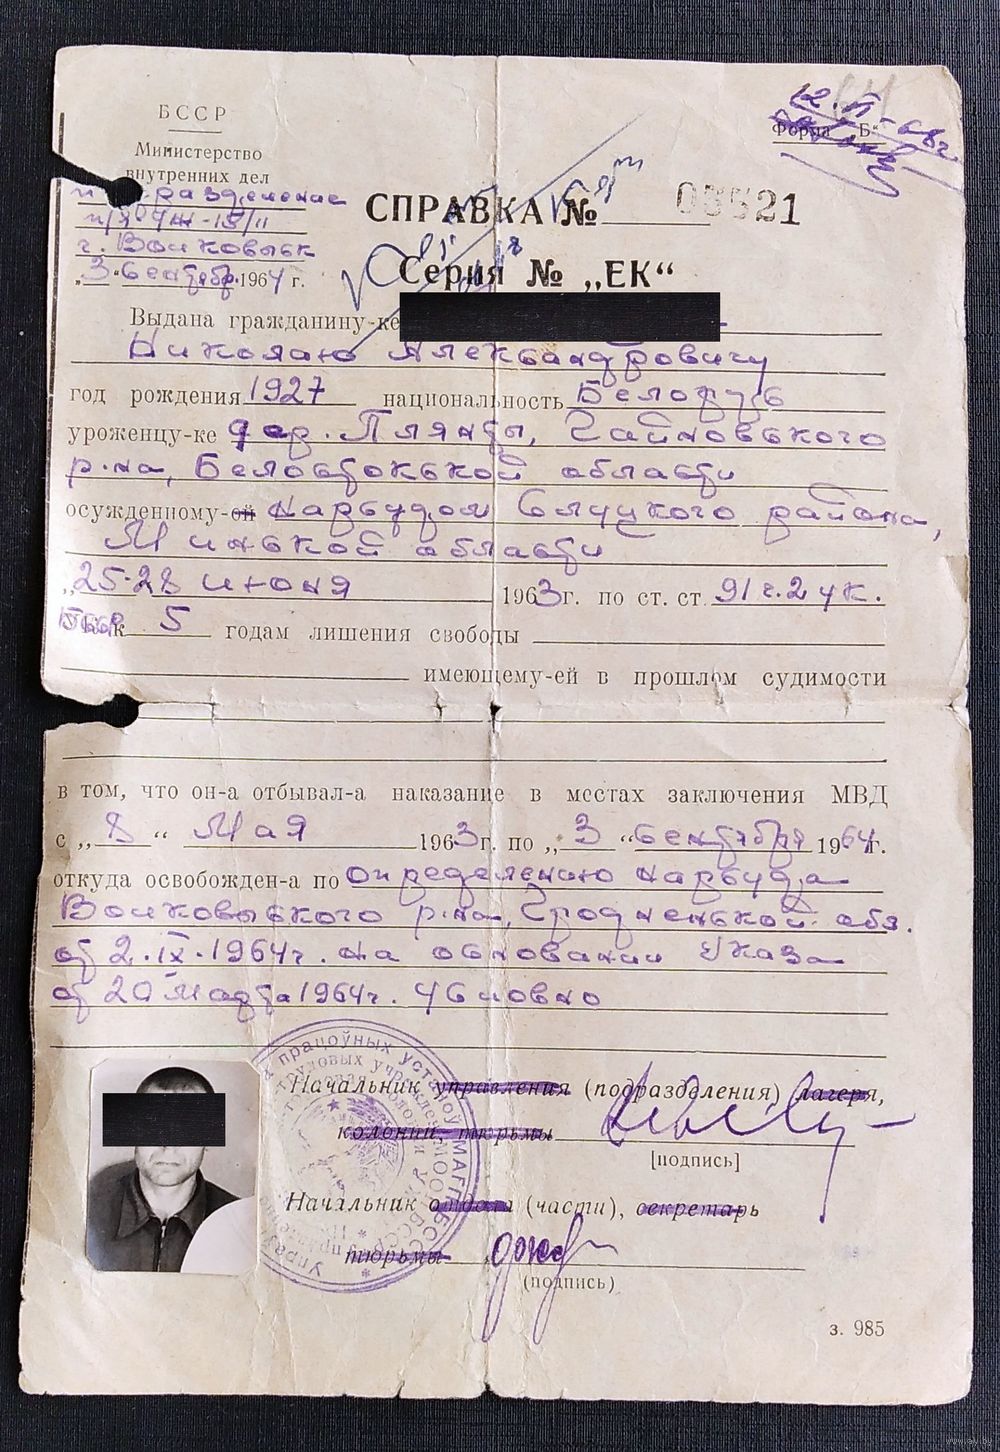 БССР
Министерство
внутренних дел
п/я УЖ-15/11
г. Волковыск
„3“ сентябр. 1964 г.
12.
Форма „Б“
СПРАВКА № 03521
Серия № „ЕК“
Выдана гражданину-ке
Николаю Александровичу
год рождения 1927 национальность Белорус
уроженцу-ке дер. Плянты, Гайновского
р-на, Белостокской области
осужденному-ой Нарсудом Слуцкого района,
Минской области
„25-28 июня 1963 г. по ст. ст. 91 ч. 2 ук.
БССР к 5 годам лишения свободы
имеющему-ей в прошлом судимости
в том, что он-а отбывал-а наказание в местах заключения МВД
с „8“ Мая 1963 г. по „3“ сентября 1964 г.
откуда освобожден-а по определению нарсуда
Волковыского р-на, Гродненской обл.
от 2.IX.1964 г. на основании Указа
от 20 марта 1964 г. условно
Начальник управления (подразделения) лагеря,
колонии, тюрьмы
[подпись]
Начальник отдела (части), секретарь
тюрьмы
(подпись)
з. 985